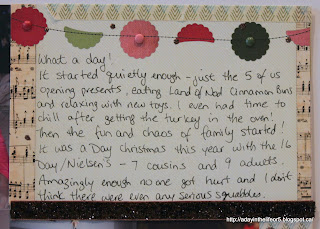 What a day!
It started quietly enough - just the 5 of us
opening presents, eating Land of Nod Cinnamon Buns
and relaxing with new toys. I even had time to
chill after getting the turkey in the oven!
Then the fun and chaos of family started!
It was a Day Christmas this year with the 16
Day/Nielsen's - 7 cousins and 9 adults.
Amazingly enough no one got hurt and I don't
think there were even any serious squabbles.
http://adayinthelifeof5.blogspot.ca/